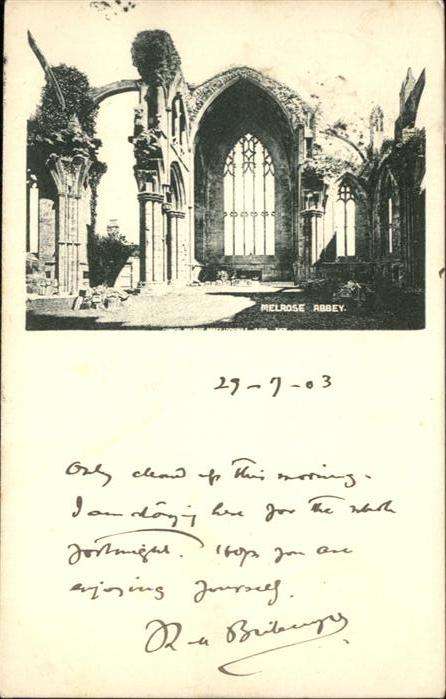 MELROSE ABBEY.
29-7-03
Only cleared up this morning.
I am staying here for the whole
fortnight. Hope you are
enjoying yourself.